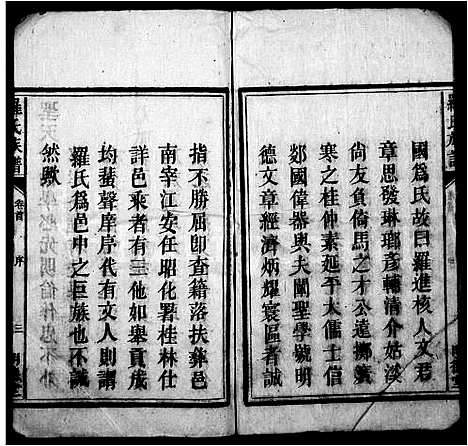 國為氏故曰羅進核人文若
章思發琳瑯彥輔清介姑溪
尚友負倚馬之才公遠擲
寒之桂仲素延平大儒士信
郯國偉器與夫闡聖學號明
德文章經濟炳耀寰區者誠
指不勝屈卽查籍落扶彝邑
南宰江安任昭化署桂林仕
詳邑乘者有三他如舉貢歲
均蜚聲庠序代有文人則謂
羅氏為邑中之巨族也不誠
然歟
羅氏族譜
卷首
序
三